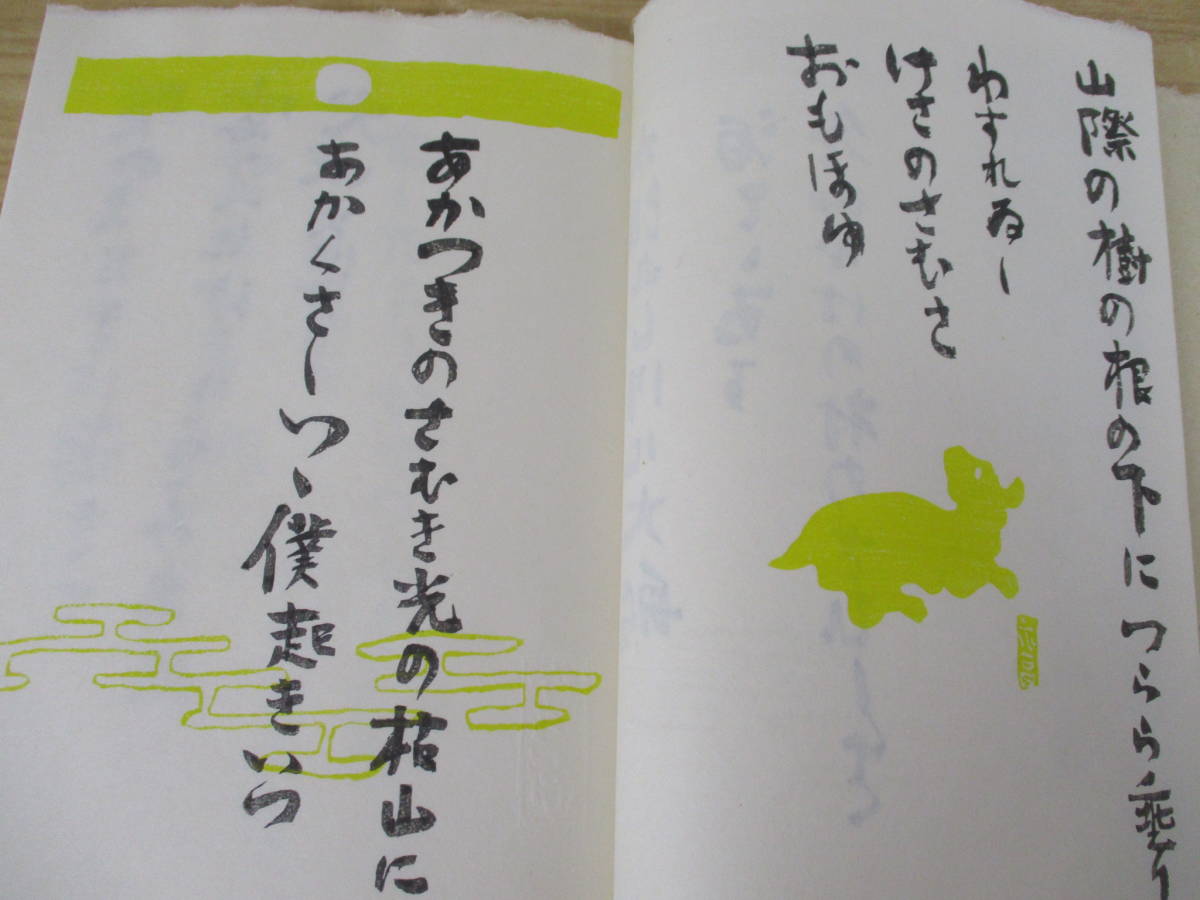 山際の樹の根の下につらら垂り
わすれゐし
けさのさむさ
おもほゆ
あかつきのさむき光の枯山に
あかくさしつゝ僕起きいつ